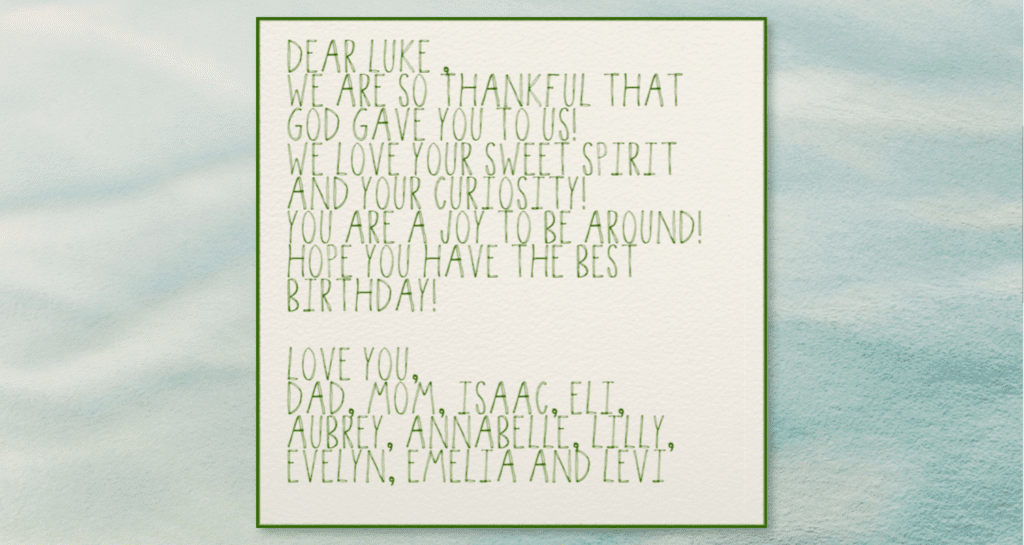 DEAR LUKE ,
WE ARE SO THANKFUL THAT
GOD GAVE YOU TO US!
WE LOVE YOUR SWEET SPIRIT
AND YOUR CURIOSITY!
YOU ARE A JOY TO BE AROUND!
HOPE YOU HAVE THE BEST
BIRTHDAY!
LOVE YOU,
DAD, MOM, ISAAC, ELI,
AUBREY, ANNABELLE, LILLY,
EVELYN, EMELIA AND LEVI